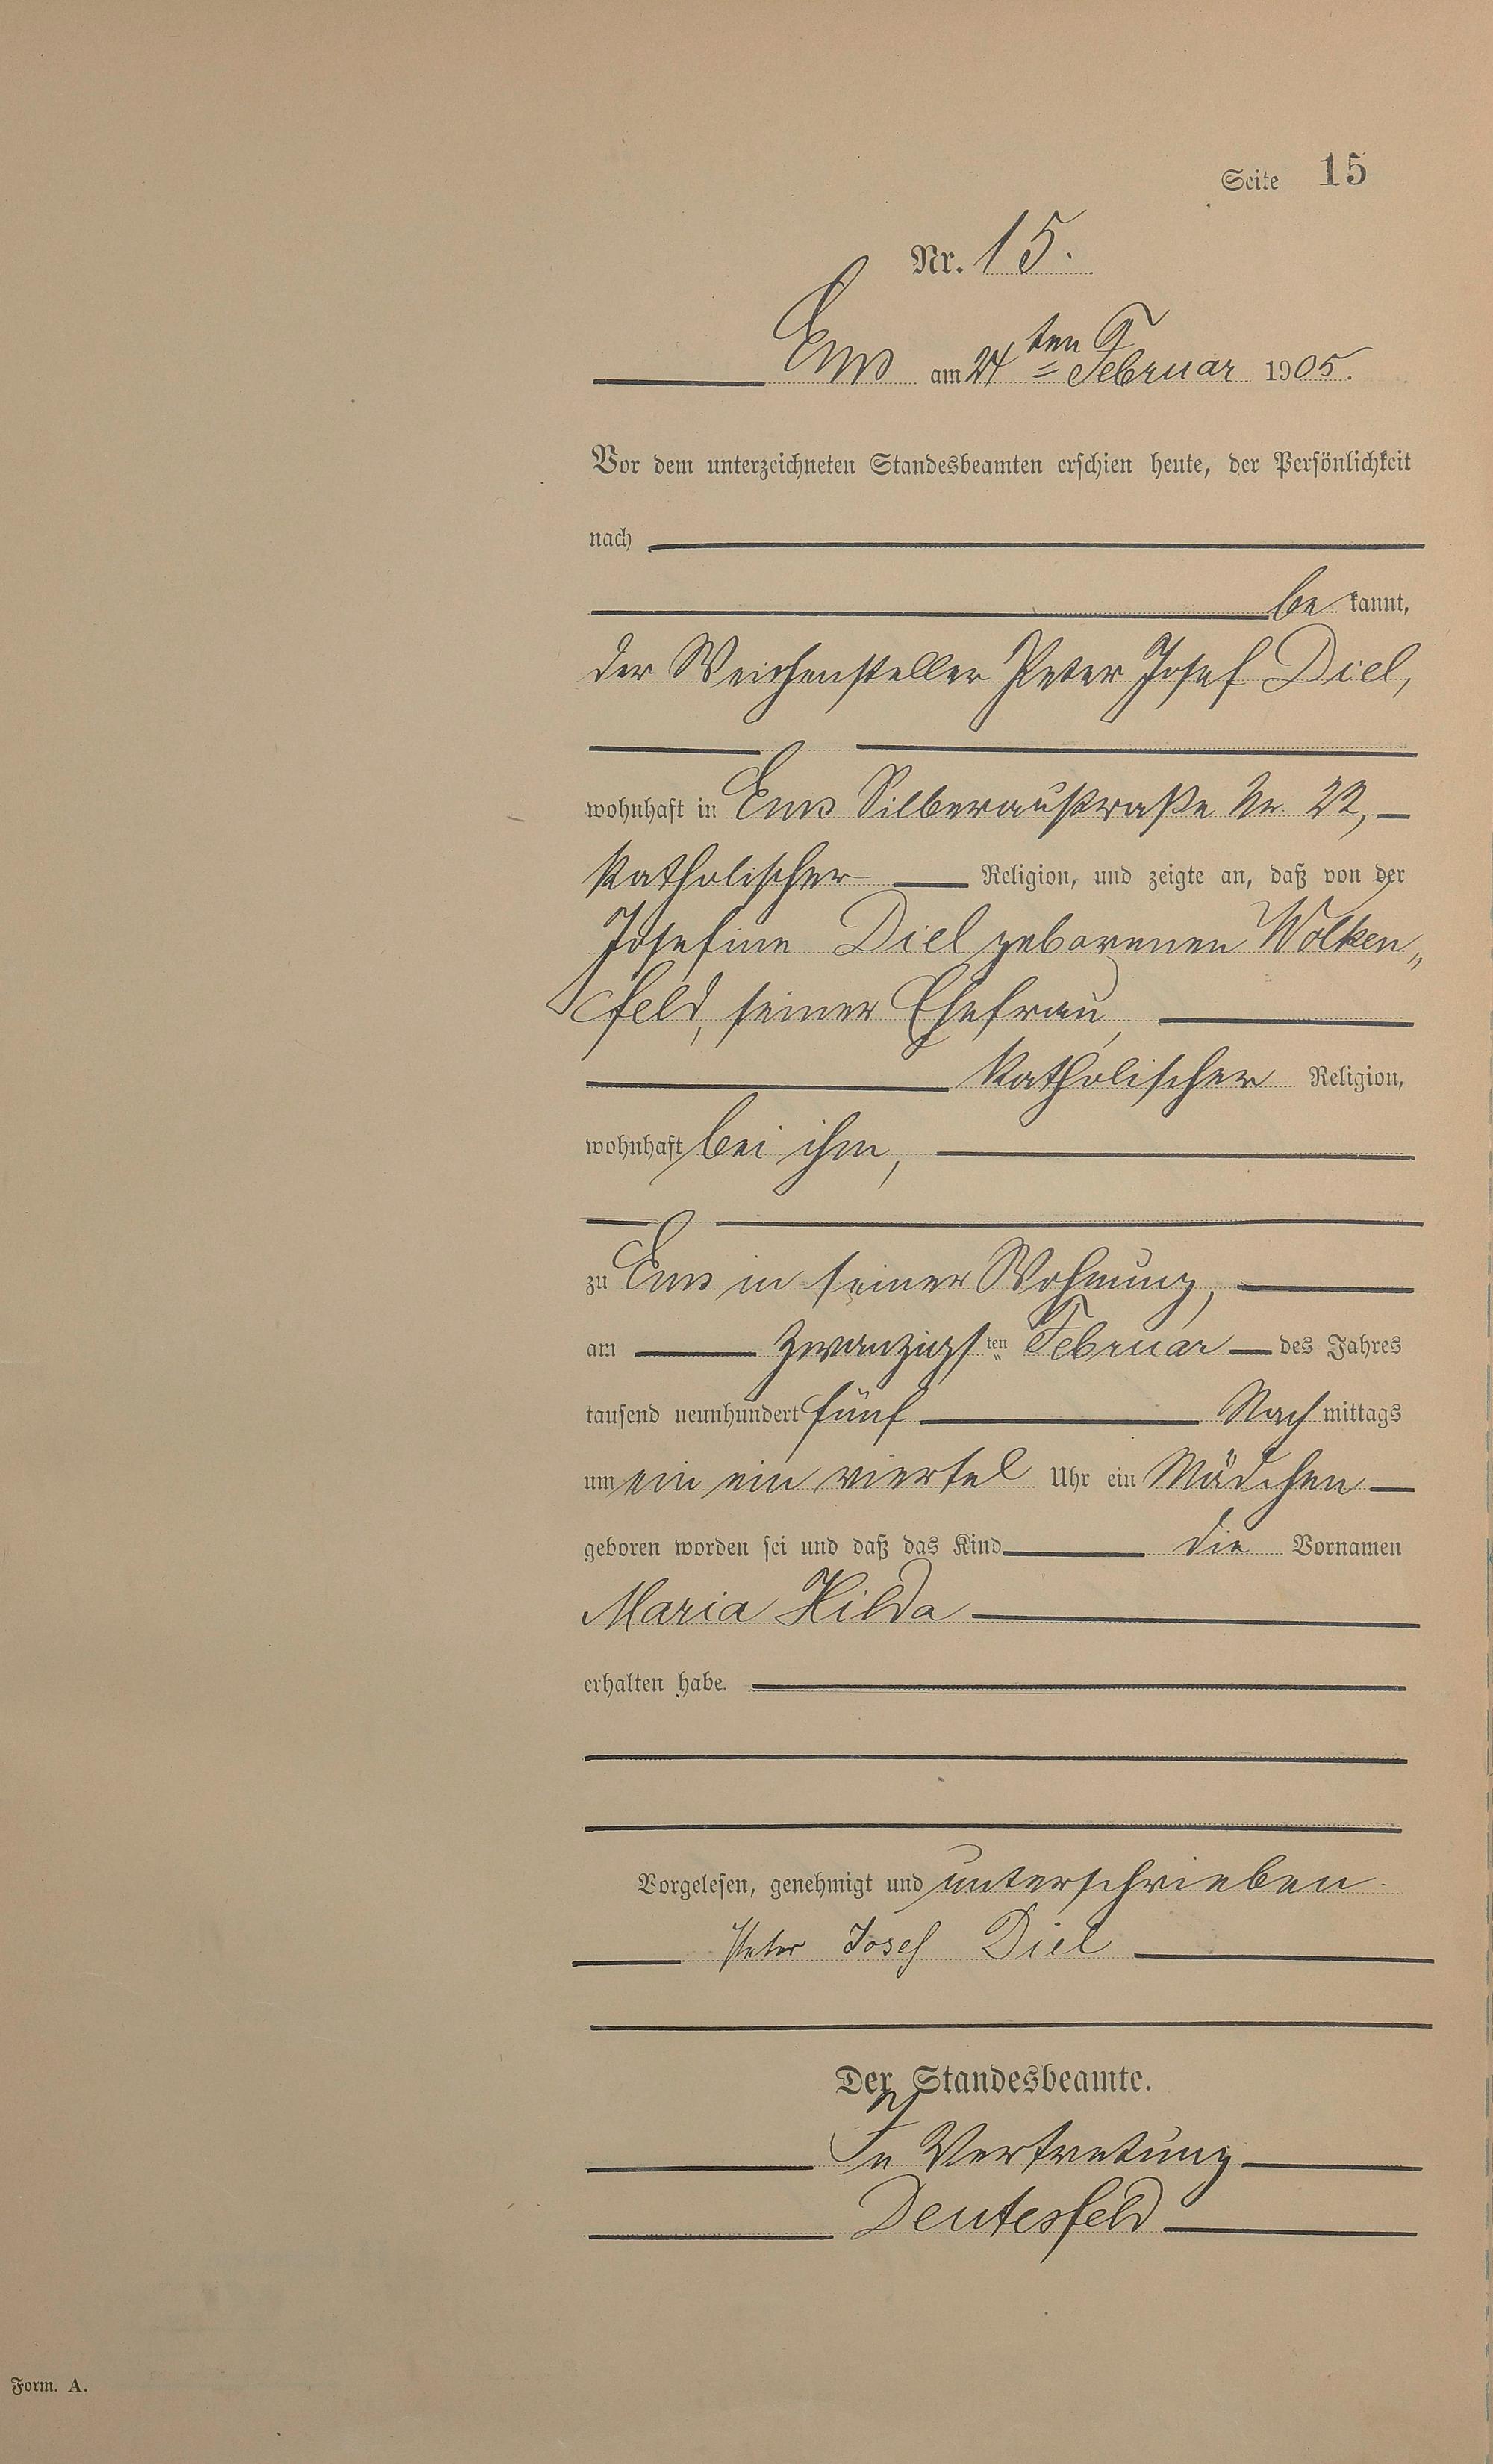 Seite 15
Nr. 15.
Ems am 24ten Februar 1905.
Vor dem unterzeichneten Standesbeamten erschien heute, der Persönlichkeit
nach
be kannt,
der Weichensteller Peter Josef Diel,
wohnhaft in Ems Silberaustraße Nr.
katholischer Religion, und zeigte an, daß von der
Josefine Diel geborenen Wolken„
feld, seiner Ehefrau,
katholischer Religion,
wohnhaft bei ihm,
zu Ems in seiner Wohnung,
am zwanzigsten Februar des Jahres
tausend neunhundert fünf Nach mittags
um ein ein viertel Uhr ein Mädchen
geboren worden sei und daß das Kind die Vornamen
Maria Hilda
erhalten habe.
Vorgelesen, genehmigt und unterschrieben.
Peter Josef Diel
Der Standesbeamte.
In Vertretung
Deutesfeld
Form. A.